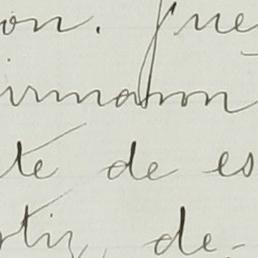 on. Jue
irmaron
te de es
rtiz, de-